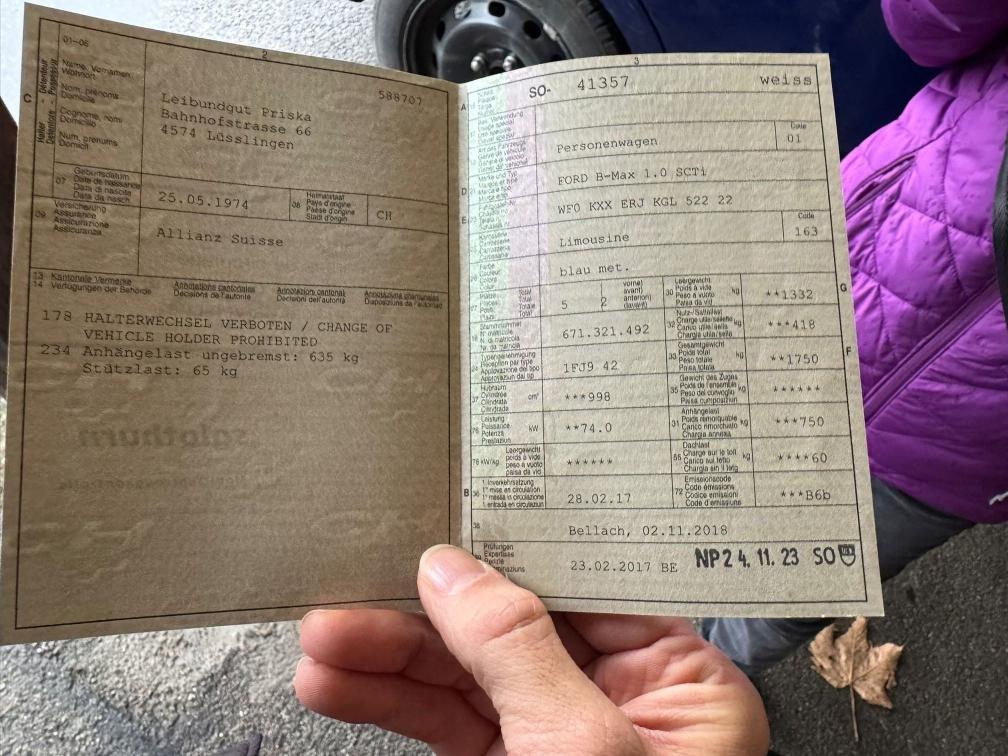 2
C
Halter - Détenteur
Detentore - Possessur
01-06
Name, Vornamen
Wohnort
Nom, prénoms
Domicile
Cognome, nomi
Domicilio
Num, prenums
Domicil
588707
Leibundgut Priska
Bahnhofstrasse 66
4574 Lüsslingen
07
Geburtsdatum
Date de naissance
Data di nascita
Data da nasch.
25.05.1974
08
Heimatstaat
Pays d'origine
Paese d'origine
Stadi d'origin
CH
09
Versicherung
Assurance
Assicurazione
Assicuranza
Allianz Suisse
13 Kantonale Vermerke
14 Verfügungen der Behörde
Annotations cantonales
Décisions de l'autorité
Annotazioni cantonali
Decisioni dell'autorità
Annotaziuns chantunalas
Disposiziuns da l'autoritad
178 HALTERWECHSEL VERBOTEN / CHANGE OF
VEHICLE HOLDER PROHIBITED
234 Anhängelast ungebremst: 635 kg
Stützlast: 65 kg
3
A
SO- 41357 weiss
Art des Fahrzeugs
Genre de véhicule
Genere di veicolo
Personenwagen
Code
01
D
Marke und Typ
Marque et type
Marca e tipo
FORD B-Max 1.0 SCTi
E
WF0 KXX ERJ KGL 522 22
Limousine
Code
163
Farbe
Couleur
Colore
blau met.
Total
Total
Totale
Total
5
2
vorne)
avant)
anteriori)
davant)
30
Leergewicht
Poids à vide
Peso a vuoto
Paisa da vid
kg
**1332
G
Stammnummer
N° matricule
N. di matricola
Nr. da matricla
671.321.492
32
Nutz-/Sattellast
Charge utile/sellette
Carico utile/sella
Chargia utila/sella
kg
***418
24
Typengenehmigung
Réception par type
Approvazione del tipo
Approvaziun dal tip
1FJ9 42
33
Gesamtgewicht
Poids total
Peso totale
Paisa totala
kg
**1750
F
37
Hubraum
Cylindrée
Cilindrata
Cilindrada
cm³
***998
35
Gewicht des Zuges
Poids de l'ensemble
Peso del convoglio
Paisa cumposiziun
kg
******
76
Leistung
Puissance
Potenza
Prestaziun
kW
**74.0
31
Anhängelast
Poids remorquable
Carico rimorchiato
Chargia annexa
kg
***750
78 kW/kg
Leergewicht
poids à vide
peso a vuoto
paisa da vid
******
55
Dachlast
Charge sur le toit
Carico sul tetto
Chargia sin il tetg
kg
****60
B
36
1. Inverkehrsetzung
1re mise en circulation
1a messa in circolazione
1. entrada en circulaziun
28.02.17
72
Emissionscode
Code émissions
Codice emissioni
Code d'emissiuns
***B6b
38
Bellach, 02.11.2018
Prüfungen
Expertises
23.02.2017 BE
NP 2 4. 11. 23 SO